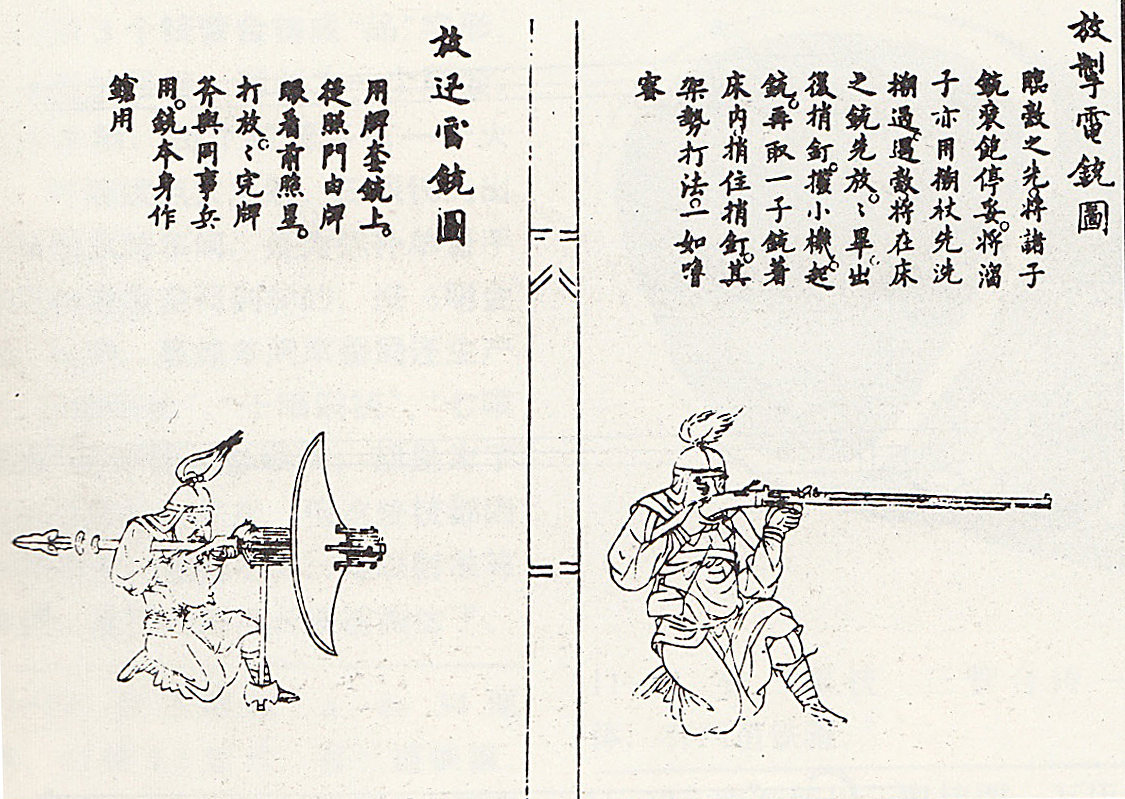 放掣電銃圖
臨敵之先。將諸子
銃裝飽停妥。將溜
子亦用搠杖先洗
搠過。遇敵將在床
之銃先放〻畢。出
後捎釘。攩小機。起
銃。再取一子銃著
床内。捎住捎釘。其
架勢打法。一如嚕
蜜
放迅雷銃圖
用牌套銃上。
從照門由牌
眼看前照星。
打放。〻完牌
斧與同事兵
用。銃本身作
鎗用